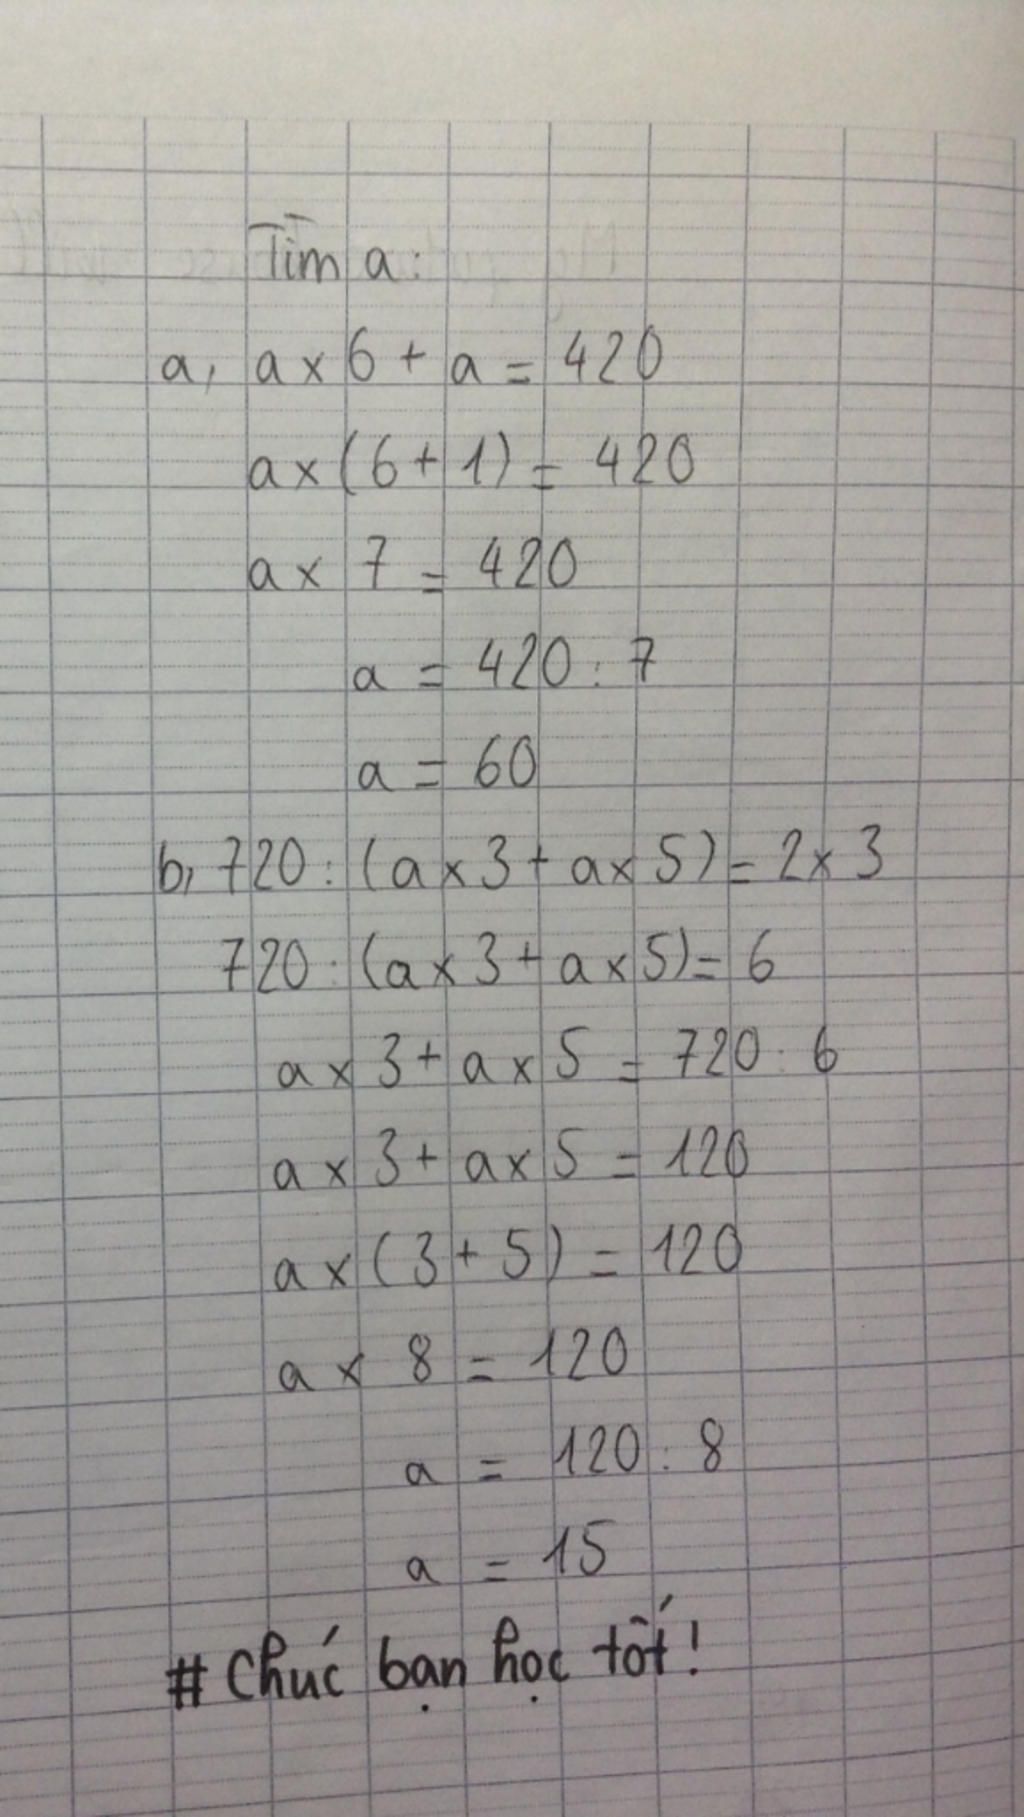 Tìm a:
a, a x 6 + a = 420
a x (6 + 1) = 420
a x 7 = 420
a = 420 : 7
a = 60
b, 720 : (a x 3 + a x 5) = 2 x 3
720 : (a x 3 + a x 5) = 6
a x 3 + a x 5 = 720 : 6
a x 3 + a x 5 = 120
a x (3 + 5) = 120
a x 8 = 120
a = 120 : 8
a = 15
# Chúc bạn học tốt!